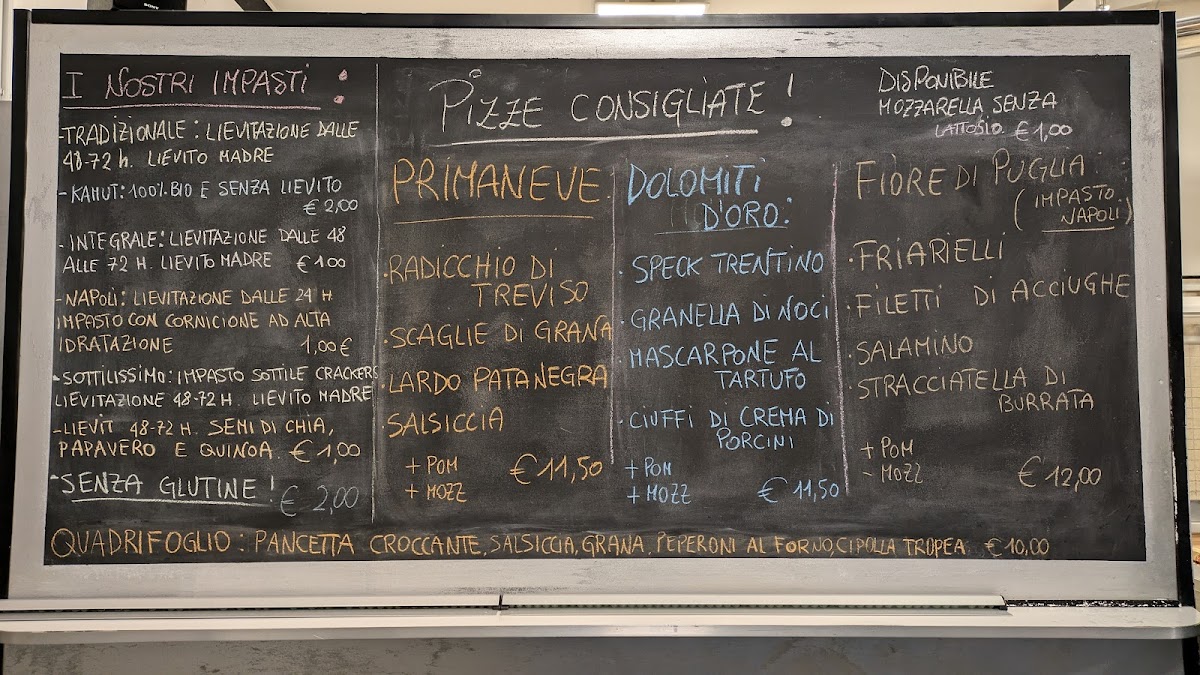 SONY
I NOSTRI IMPASTI :
-TRADIZIONALE: LIEVITAZIONE DALLE
48-72 H. LIEVITO MADRE
- KAMUT: 100% BIO E SENZA LIEVITO
€ 2,00
- INTEGRALE: LIEVITAZIONE DALLE 48
ALLE 72 H. LIEVITO MADRE € 1,00
-NAPOLI: LIEVITAZIONE DALLE 24 H
IMPASTO CON CORNICIONE AD ALTA
IDRATAZIONE 1,00 €
-SOTTILISSIMO: IMPASTO SOTTILE CRACKERS
LIEVITAZIONE 48-72 H. LIEVITO MADRE
-LIEVIT 48-72 H. SEMI DI CHIA,
PAPAVERO E QUINOA. € 1,00
-SENZA GLUTINE! € 2,00
PIZZE CONSIGLIATE!
DISPONIBILE
MOZZARELLA SENZA
LATTOSIO € 1,00
PRIMANEVE
·RADICCHIO DI
TREVISO
·SCAGLIE DI GRANA
·LARDO PATANEGRA
·SALSICCIA
+ POM
+ MOZZ € 11,50
DOLOMITI
D'ORO:
·SPECK TRENTINO
·GRANELLA DI NOCI
·MASCARPONE AL
TARTUFO
·CIUFFI DI CREMA DI
PORCINI
+ POM
+ MOZZ € 11,50
FIORE DI PUGLIA:
(IMPASTO
NAPOLI)
·FRIARIELLI
·FILETTI DI ACCIUGHE
·SALAMINO
·STRACCIATELLA DI
BURRATA
+ POM
- MOZZ € 12,00
QUADRIFOGLIO: PANCETTA CROCCANTE, SALSICCIA, GRANA, PEPERONI AL FORNO, CIPOLLA TROPEA € 10,00